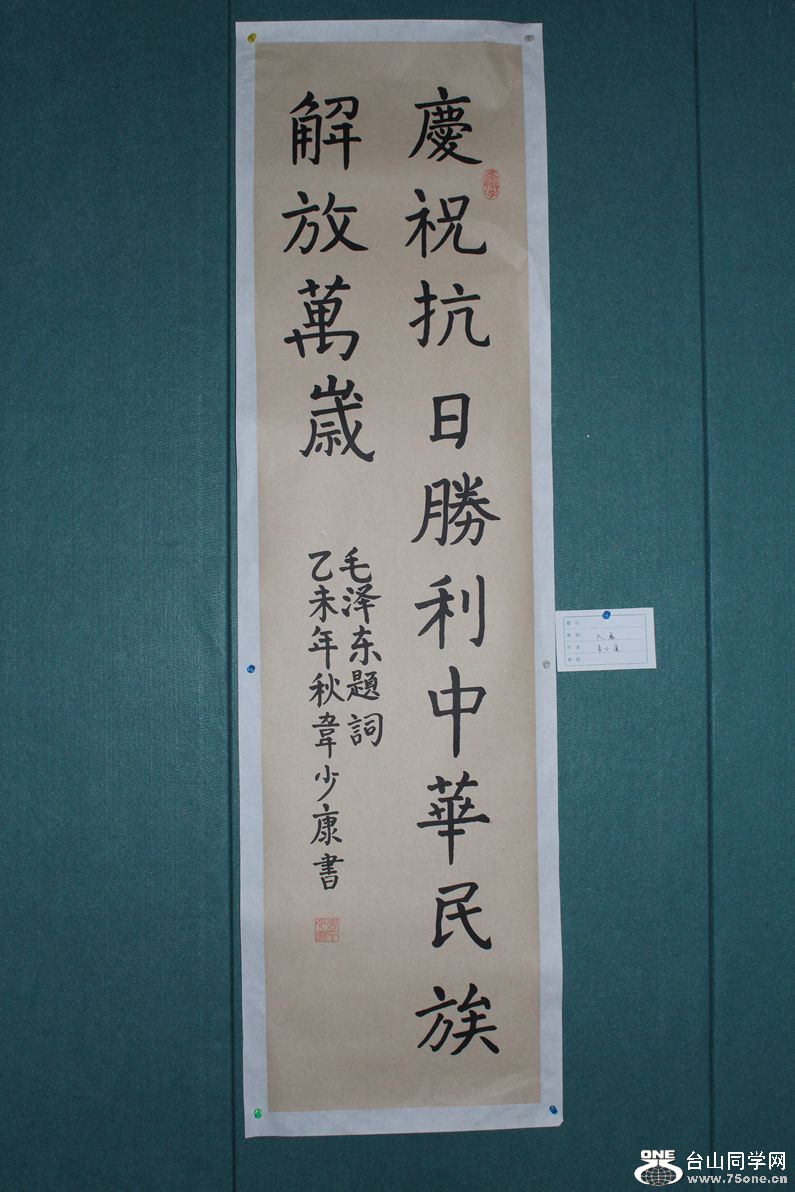 慶祝抗日勝利中華民族
解放萬歲
毛泽东題詞
乙未年秋韋少康書
入展
ONE
台山同学网
www.75one.cn